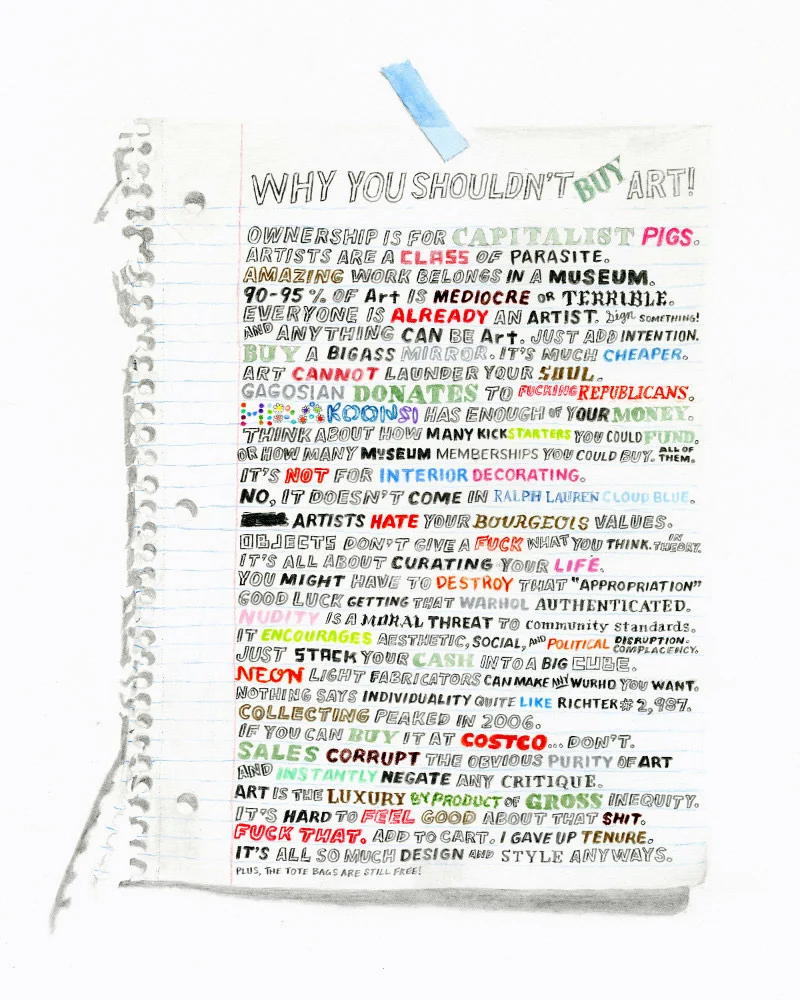 WHY YOU SHOULDN'T BUY ART!
OWNERSHIP IS FOR CAPITALIST PIGS.
ARTISTS ARE A CLASS OF PARASITE.
AMAZING WORK BELONGS IN A MUSEUM.
90-95% OF Art IS MEDIOCRE OR TERRIBLE.
EVERYONE IS ALREADY AN ARTIST. Sign SOMETHING!
AND ANYTHING CAN BE Art. JUST ADD INTENTION.
BUY A BIGASS MIRROR. IT'S MUCH CHEAPER.
ART CANNOT LAUNDER YOUR SOUL.
GAGOSIAN DONATES TO FUCKING REPUBLICANS.
HIRAKOONSI HAS ENOUGH OF YOUR MONEY.
THINK ABOUT HOW MANY KICKSTARTERS YOU COULD FUND.
OR HOW MANY MUSEUM MEMBERSHIPS YOU COULD BUY. ALL OF THEM.
IT'S NOT FOR INTERIOR DECORATING.
NO, IT DOESN'T COME IN RALPH LAUREN CLOUD BLUE.
ARTISTS HATE YOUR BOURGEOIS VALUES.
OBJECTS DON'T GIVE A FUCK WHAT YOU THINK. IN THEORY.
IT'S ALL ABOUT CURATING YOUR LIFE.
YOU MIGHT HAVE TO DESTROY THAT "APPROPRIATION"
GOOD LUCK GETTING THAT WARHOL AUTHENTICATED.
NUDITY IS A MORAL THREAT TO community standards.
IT ENCOURAGES AESTHETIC, SOCIAL, AND POLITICAL DISRUPTION. COMPLACENCY.
JUST STACK YOUR CASH INTO A BIG CUBE.
NEON LIGHT FABRICATORS CAN MAKE ANY WURHD YOU WANT.
NOTHING SAYS INDIVIDUALITY QUITE LIKE RICHTER # 2,987.
COLLECTING PEAKED IN 2006.
IF YOU CAN BUY IT AT COSTCO... DON'T.
SALES CORRUPT THE OBVIOUS PURITY OF ART
AND INSTANTLY NEGATE ANY CRITIQUE.
ART IS THE LUXURY BYPRODUCT OF GROSS INEQUITY.
IT'S HARD TO FEEL GOOD ABOUT THAT SHIT.
FUCK THAT. ADD TO CART. I GAVE UP TENURE.
IT'S ALL SO MUCH DESIGN AND STYLE ANYWAYS.
PLUS, THE TOTE BAGS ARE STILL FREE!